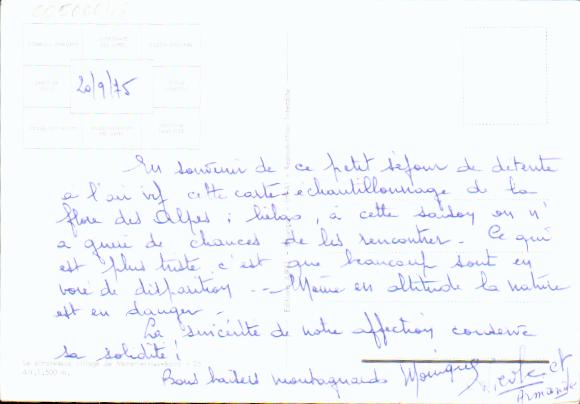 20/9/75
En souvenir de ce petit séjour de détente
a l'air vif cette carte-échantillonnage de la
flore des Alpes ; hélas, à cette saison on n'
a guère de chances de les rencontrer - Ce qui
est plus triste c'est que beaucoup sont en
voie de disparition --- Même en altitude la nature
est en danger -
La sincérité de notre affection conserve
sa solidité !
Bons baisers montagnards Monique
et
Armand
alt. 1,500 m.